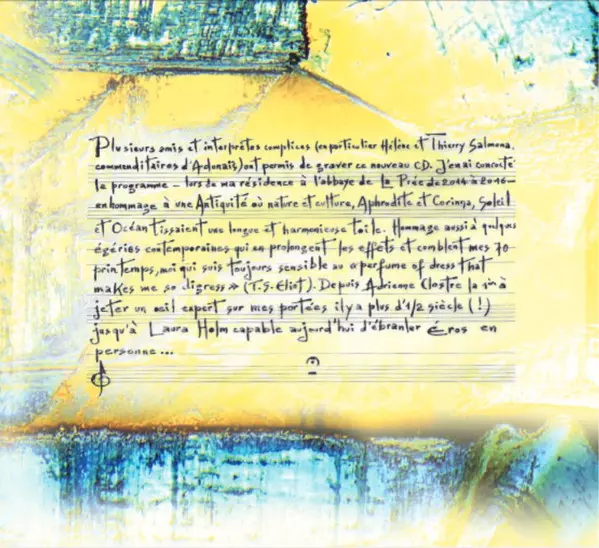 Plusieurs amis et interprètes complices (en particulier Hélène et Thierry Salmona,
commenditaires d'Adonaïs) ont permis de graver ce nouveau CD. J'en ai concocté
le programme – lors de ma résidence à l'abbaye de La Prée de 2014 à 2016 –
en hommage à une Antiquité où nature et culture, Aphrodite et Corinna, Soleil
et Océan tissaient une longue et harmonieuse toile. Hommage aussi à quelques
égéries contemporaines qui en prolongent les effets et comblent mes 70
printemps, moi qui suis toujours sensible au « perfume of dress that
makes me so digress » (T.S. Eliot). Depuis Adrienne Clostre la 1ère à
jeter un œil expert sur mes portées il y a plus d'1/2 siècle (!)
jusqu'à Laura Holm capable aujourd'hui d'ébranler Éros en
personne...